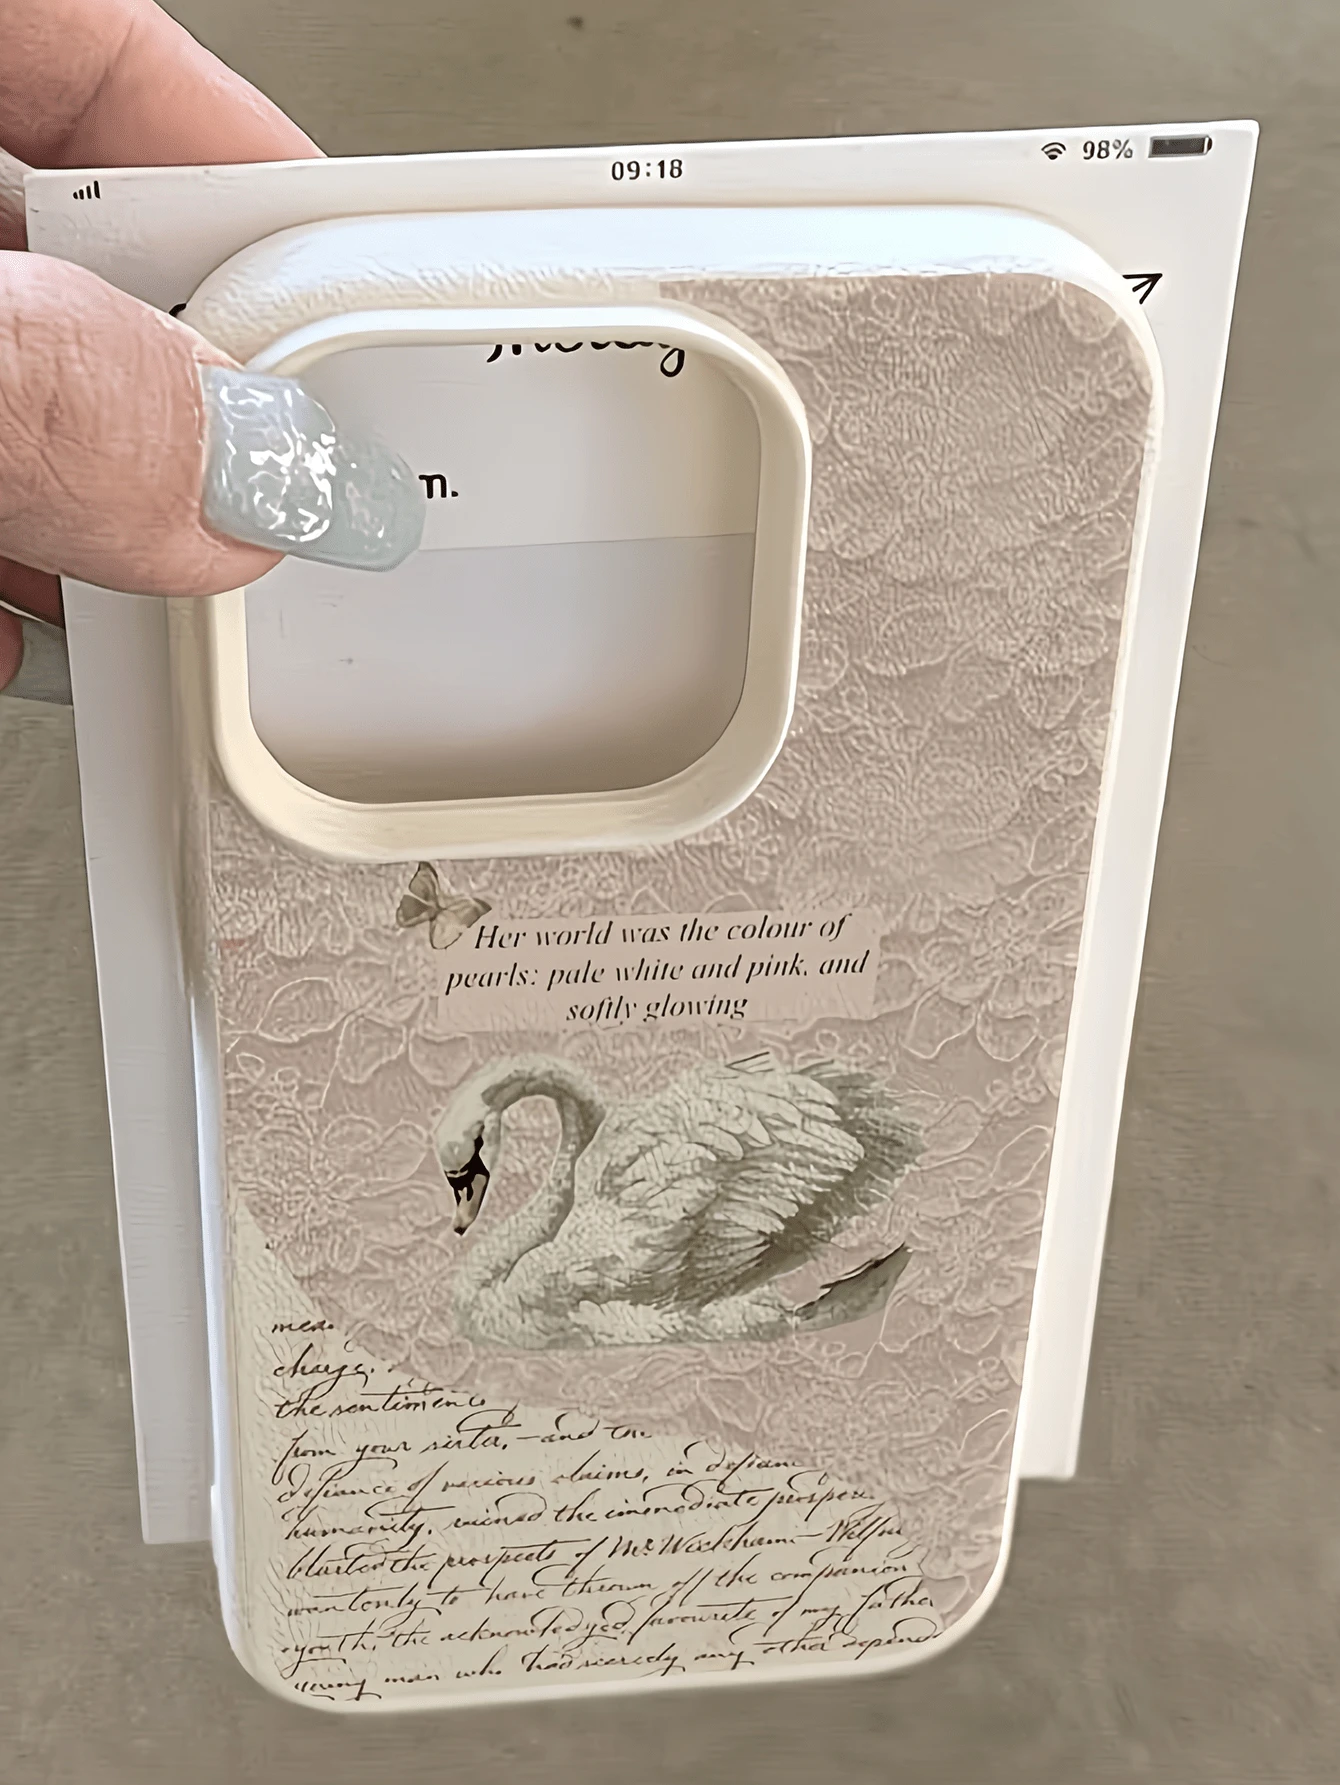 09:18
98%
m.
Her world was the colour of
pearls: pale white and pink, and
softly glowing
charge.
the sentiments
from your sister, —and the
defiance of various claims, in defiance
humanity, ruined the immediate prosper
blasted the prospects of Mr. Wickham.— Wilfu
wantonly to have thrown off the companion
youth, the acknowledged favourite of my father
young man who had scarcely any other depend